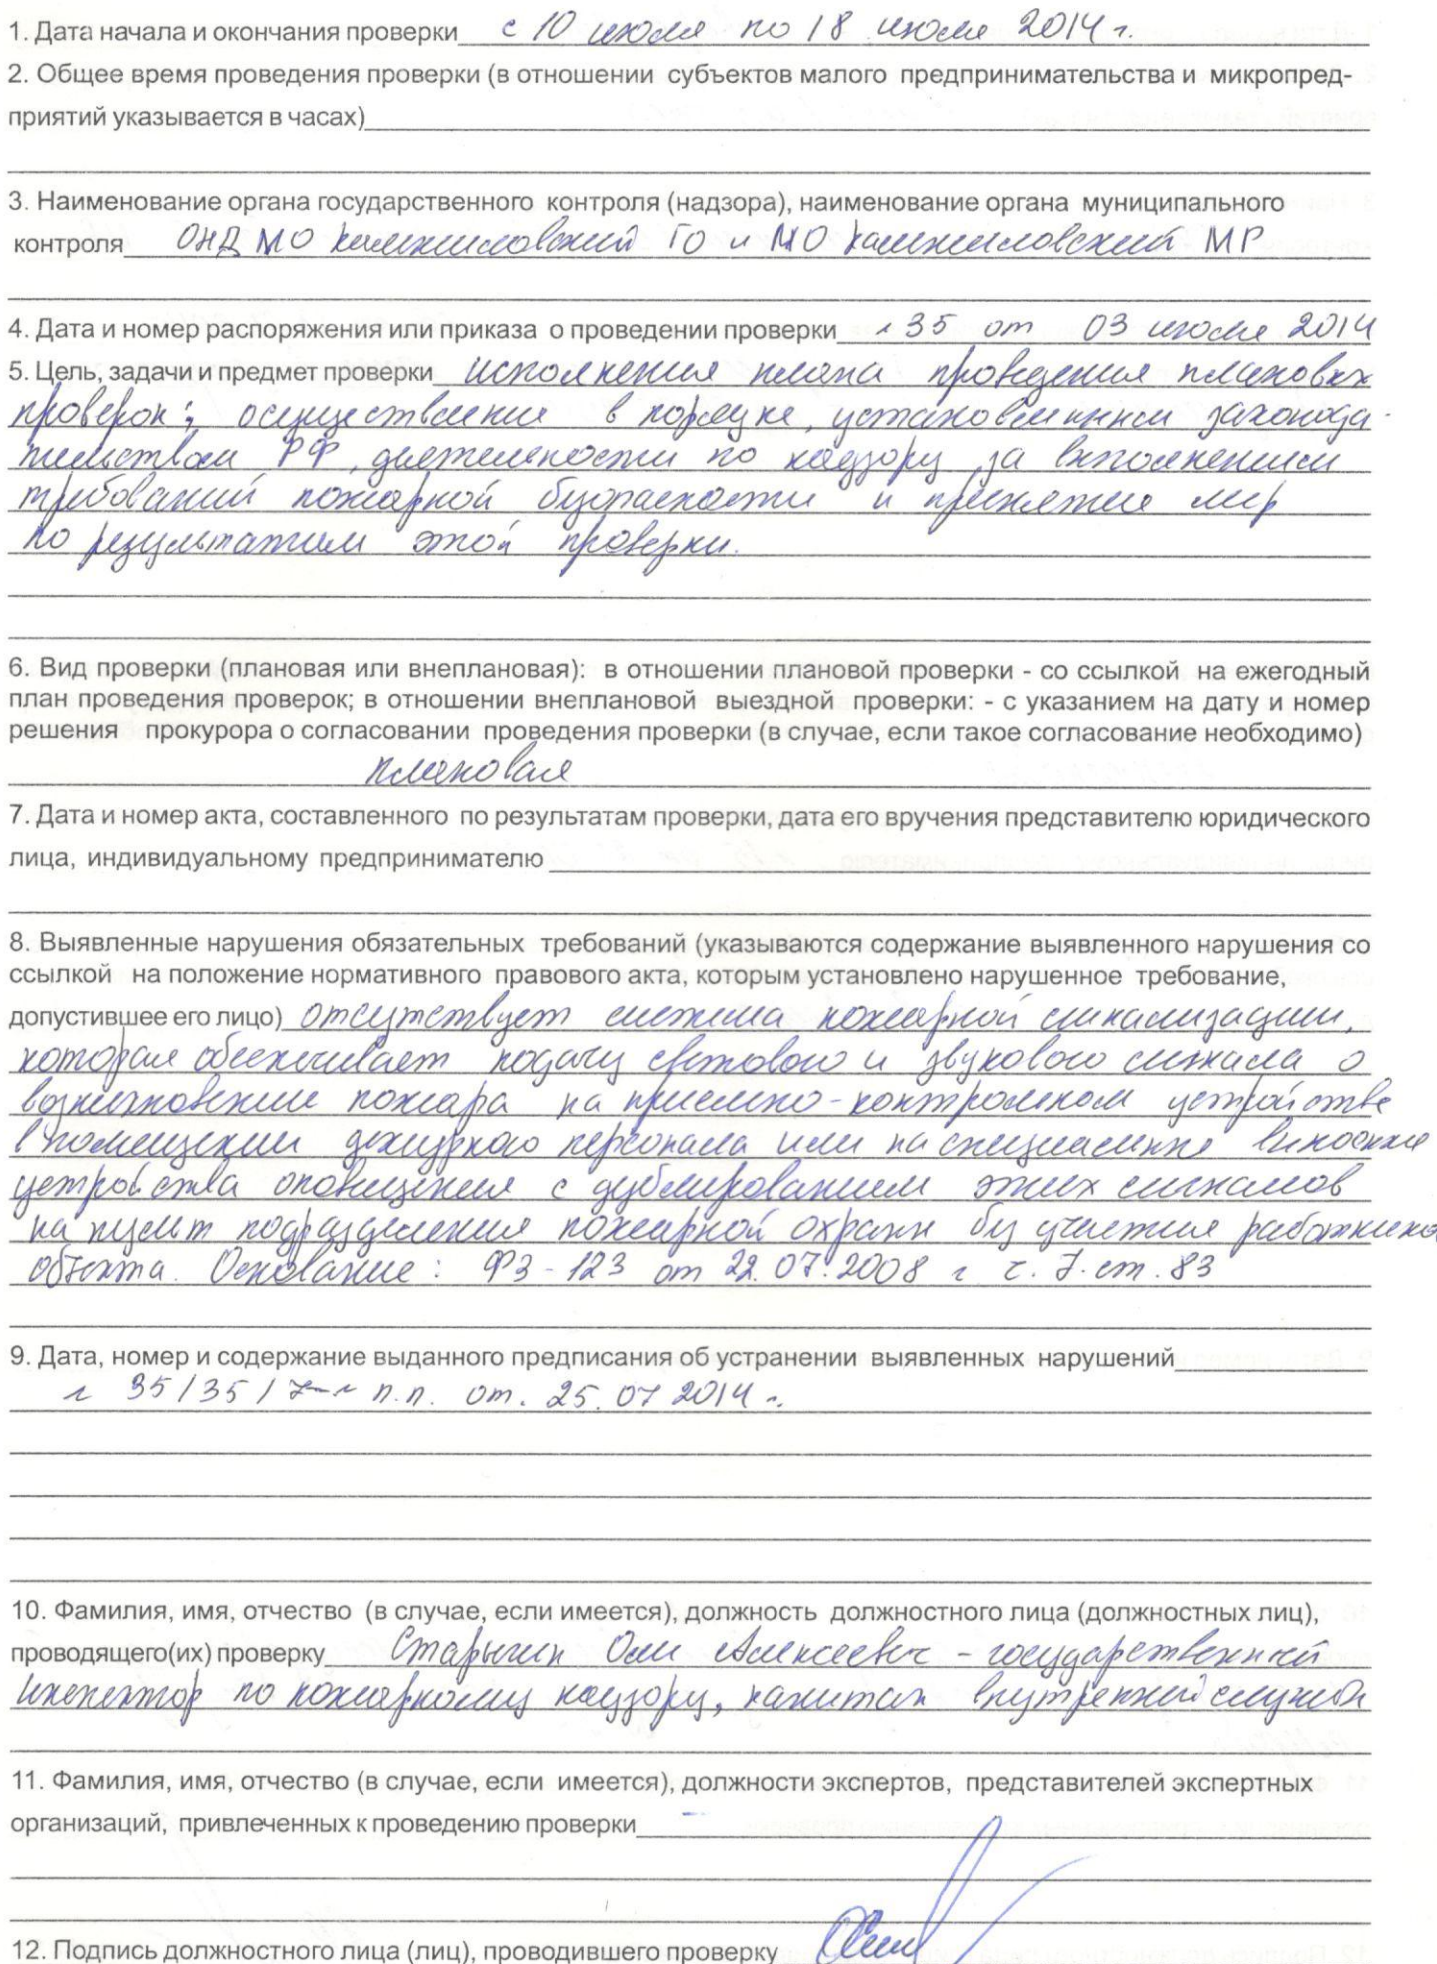 1. Дата начала и окончания проверки с 10 июля по 18 июля 2014 г.
2. Общее время проведения проверки (в отношении субъектов малого предпринимательства и микропред-
приятий указывается в часах)
3. Наименование органа государственного контроля (надзора), наименование органа муниципального
контроля ОНД МО Камышловский ГО и МО Камышловский МР
4. Дата и номер распоряжения или приказа о проведении проверки 35 от 03 июля 2014
5. Цель, задачи и предмет проверки исполнения плана проведения плановых
проверок; осуществление в порядке, установленном законода-
тельством РФ, деятельности по надзору за выполнением
требований пожарной безопасности и принятие мер
по результатам этой проверки.
6. Вид проверки (плановая или внеплановая): в отношении плановой проверки - со ссылкой на ежегодный
план проведения проверок; в отношении внеплановой выездной проверки: - с указанием на дату и номер
решения прокурора о согласовании проведения проверки (в случае, если такое согласование необходимо)
плановая
7. Дата и номер акта, составленного по результатам проверки, дата его вручения представителю юридического
лица, индивидуальному предпринимателю
8. Выявленные нарушения обязательных требований (указываются содержание выявленного нарушения со
ссылкой на положение нормативного правового акта, которым установлено нарушенное требование,
допустившее его лицо) отсутствует система пожарной сигнализации,
которая обеспечивает подачу светового и звукового сигнала о
возникновении пожара на приемно-контрольном устройстве
в помещении дежурного персонала или на специальные выносные
устройства оповещения с дублированием этих сигналов
на пульт подразделения пожарной охраны без участия работника
объекта. Основание: ФЗ-123 от 22.07.2008 г ч. 7. ст. 83
9. Дата, номер и содержание выданного предписания об устранении выявленных нарушений
35/35/ п.п. от. 25.07 2014 г.
10. Фамилия, имя, отчество (в случае, если имеется), должность должностного лица (должностных лиц),
проводящего(их) проверку Старыгин Алексеевич - государственный
инспектор по пожарному надзору, капитан внутренней службы
11. Фамилия, имя, отчество (в случае, если имеется), должности экспертов, представителей экспертных
организаций, привлеченных к проведению проверки -
12. Подпись должностного лица (лиц), проводившего проверку